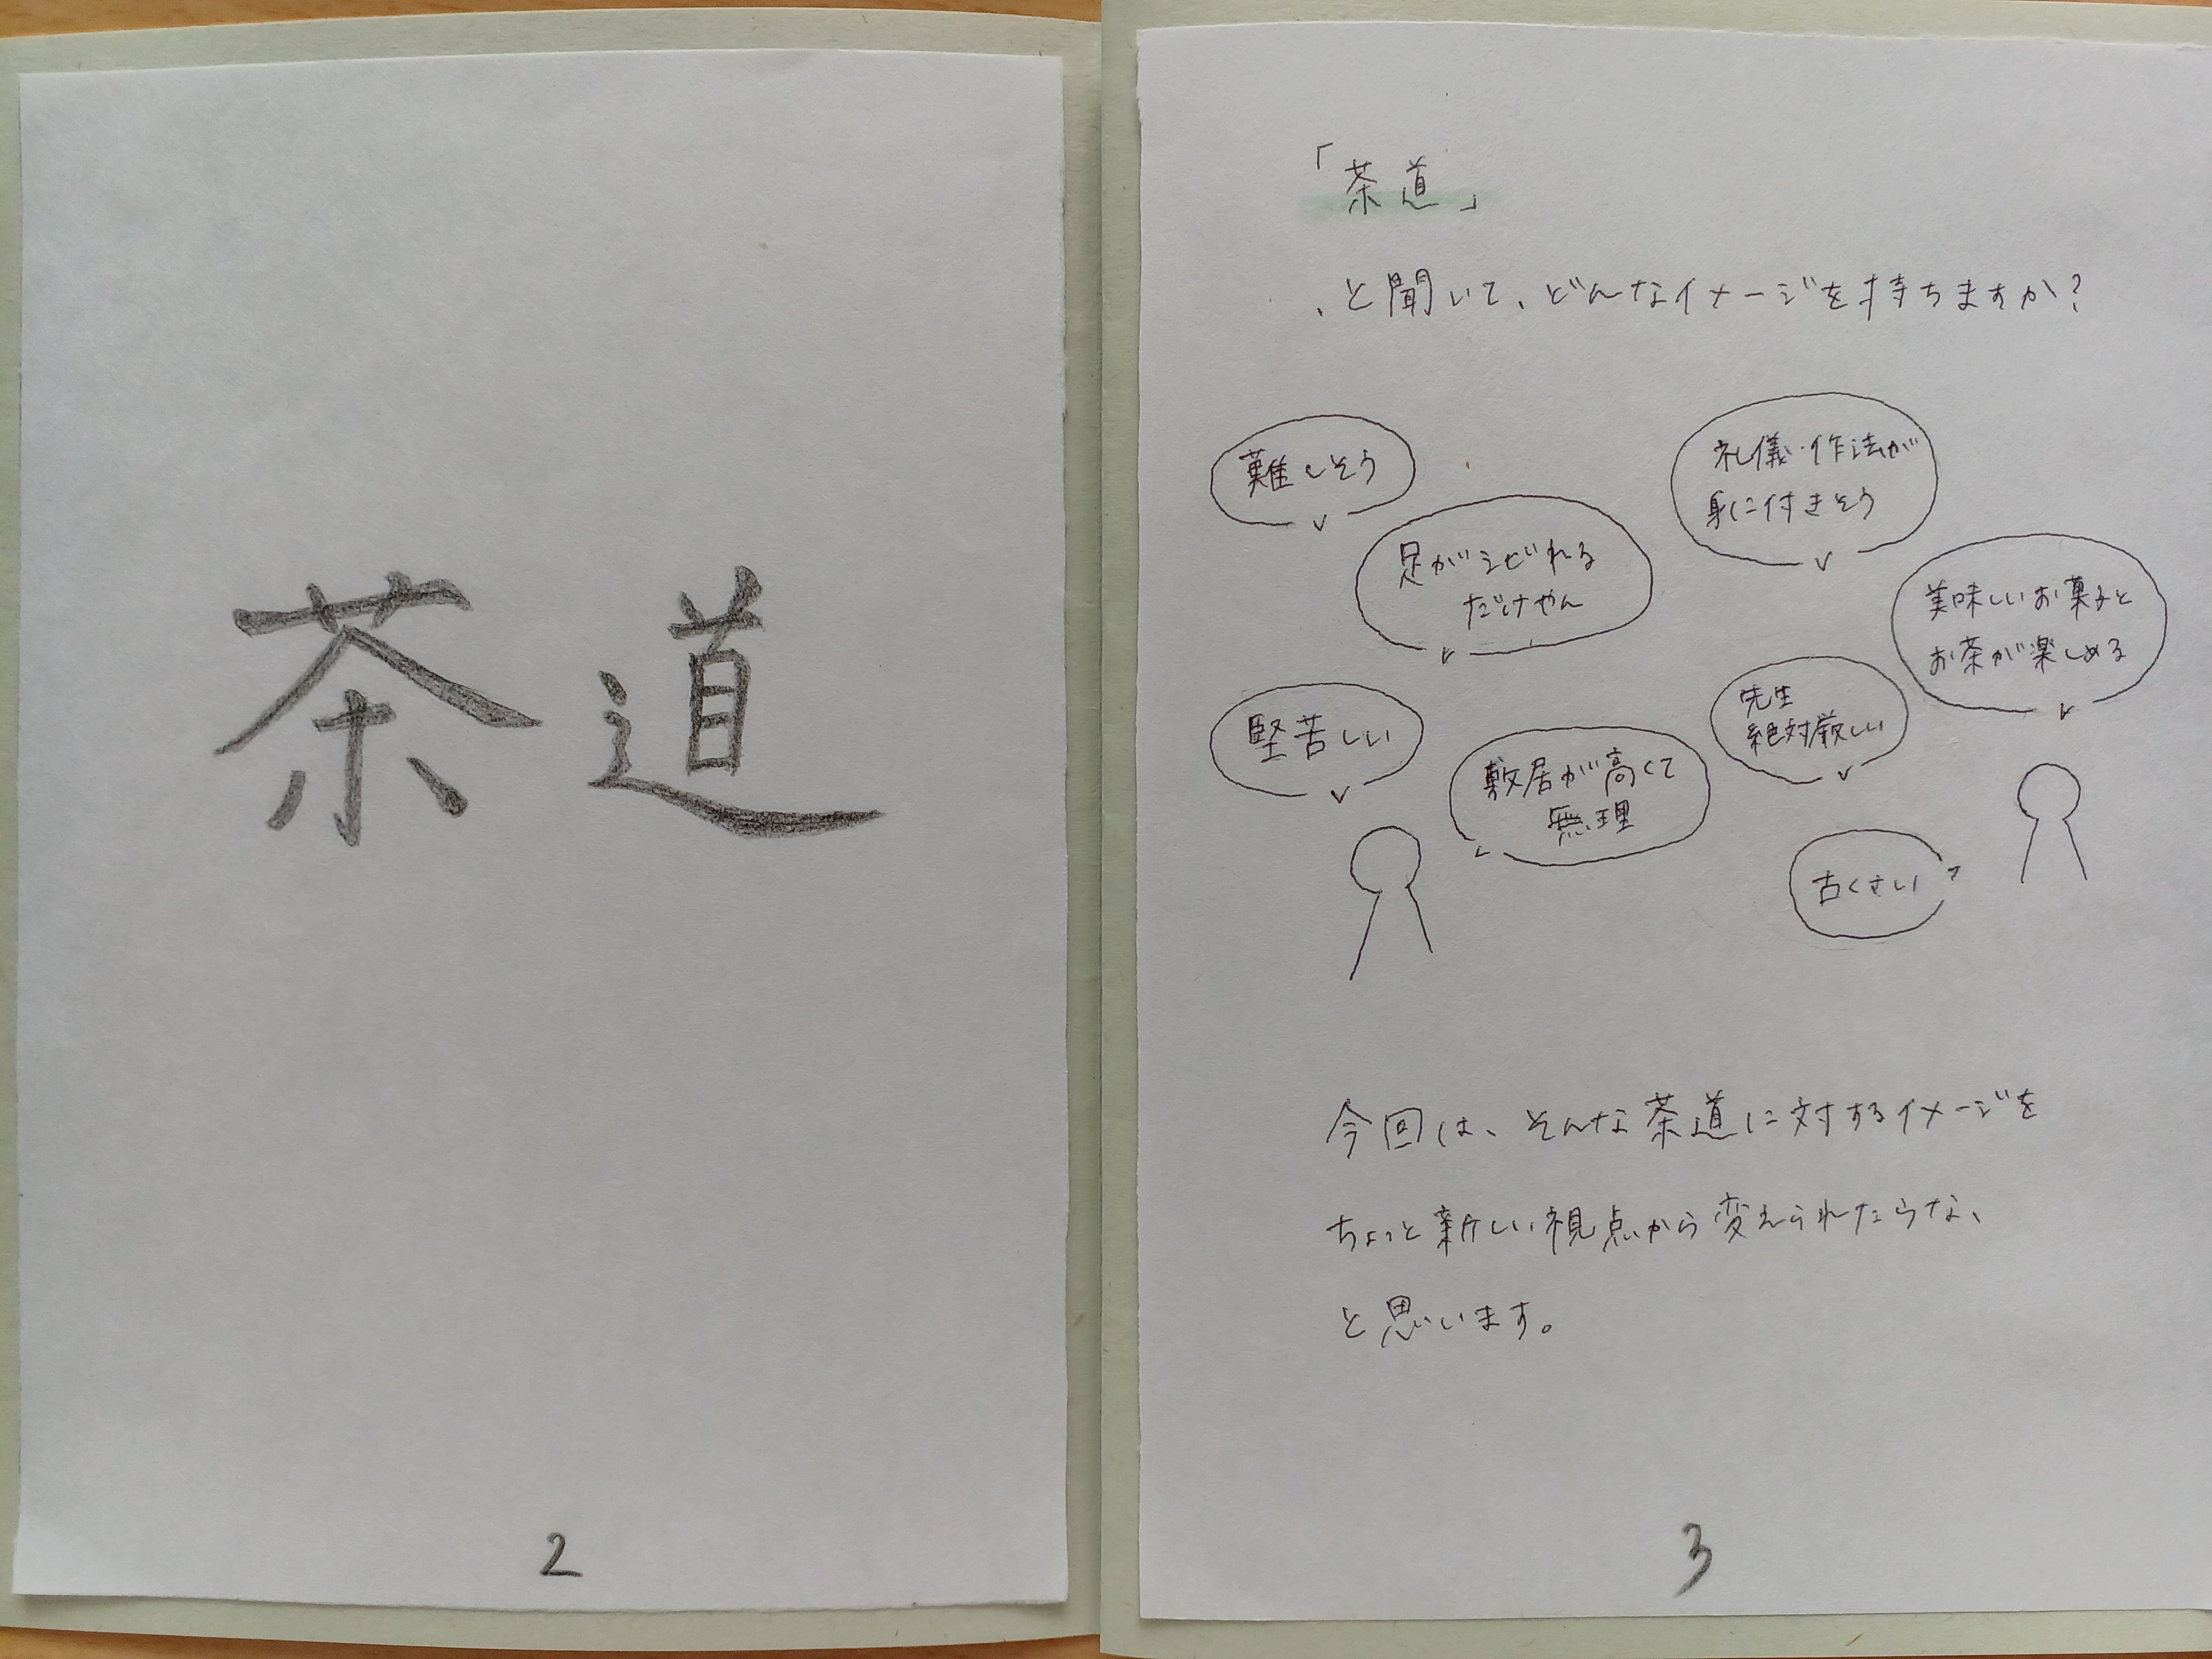 茶道
2
「茶道」
、と聞いて、どんなイメージを持ちますか?
難しそう
礼儀・作法が
身に付きそう
足がシビれる
だけやん
美味しいお菓子と
お茶が楽しめる
堅苦しい
先生
絶対厳しい
敷居が高くて
無理
古くさい
今回は、そんな茶道に対するイメージを
ちょっと新しい視点から変えられたらな、
と思います。
3